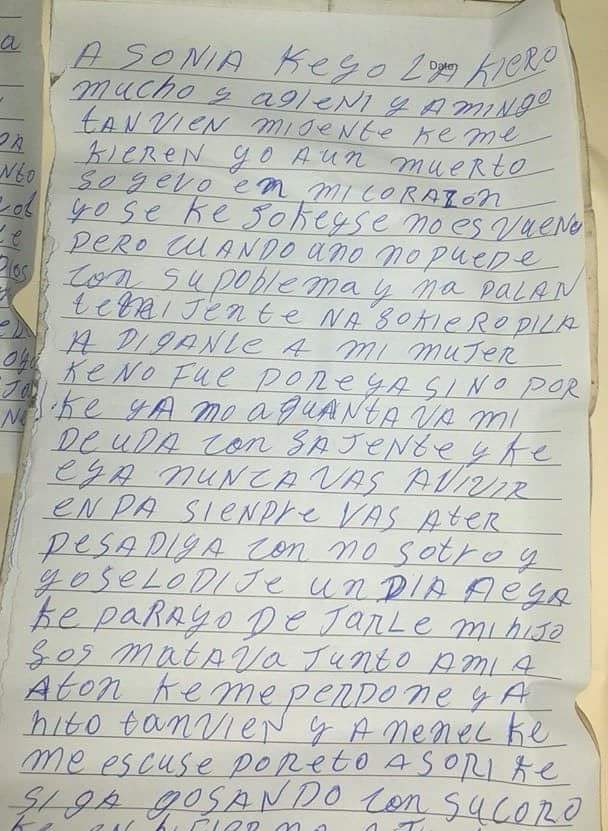 A SONIA Keyo LA KIERO
Date:
mucho y agleNI y AMINGO
tANVIeN mIJeNte KeMe
KIEReN yo AUN muerto
So gevo en MI CORAZon
yo Se Ke soKeySe No es VUeNo
Pero CUANDO uno No PUeDe
con Su poblema y na PALAN
Jente NA SoKIeRO DILA
A DIGANLE A mi muJer
Ke No Fue PoReyA SINO POR
Ke YA no AGUANtAVA MI
DeUDA con SA JeNte y Ke
eyA NUNCA VAS AVIVIR
eN PA SIeNPre VAS AteR
DeSADIYA con no Sotro y
yo Se Lo DIJe un DIA AeyA
Ke PARAyo De JARLe mi hiJo
Sos matAVA JUNto AMI A
Aton Ke me perDone y A
hito tanVIeN y A NeNeL Ke
me escuse Poreto A SORI Ke
SIGA GOSANDO con SU CORO